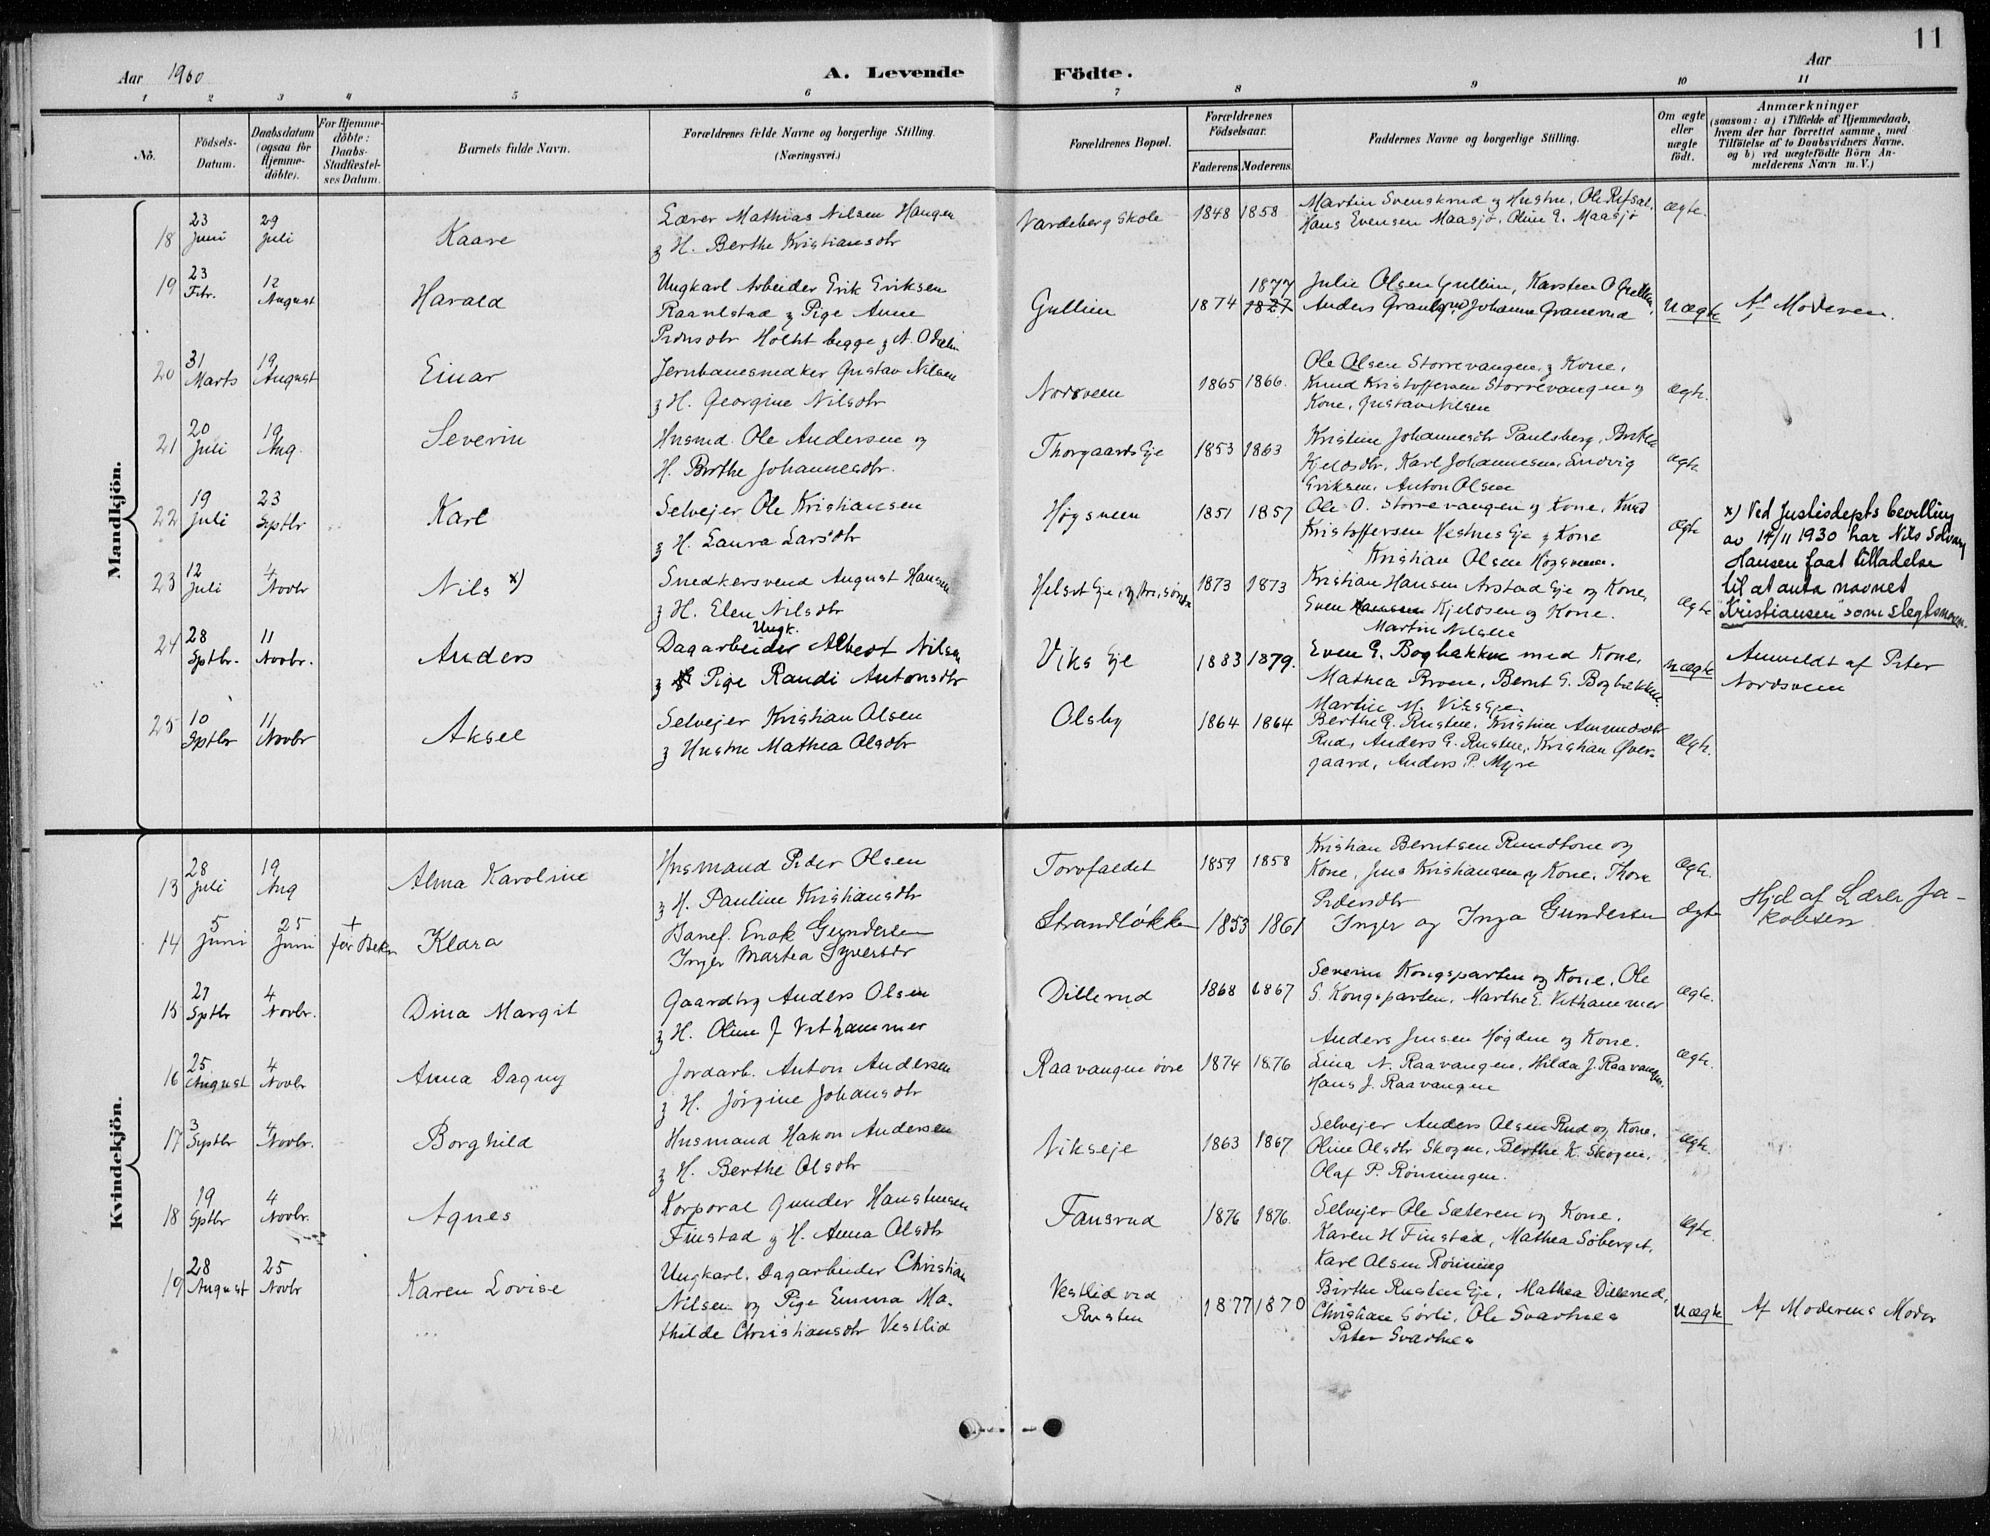 11
Aar 1900
A. Levende Födte.
Aar
1 2 3 4 5 6 7 8 9 10 11
No.
Födsels-Datum.
Daabsdatum (ogsaa for Hjemme-döbte).
For Hjemme-döbte: Daabs-Stadfæstel-ses Datum.
Barnets fulde Navn.
Forældrenes fulde Navne og borgerlige Stilling. (Næringsvei.)
Forældrenes Bopæl.
Forældrenes Födselsaar.
Faderens Moderens
Faddernes Navne og borgerlige Stilling.
Om ægte eller uægte födt.
Anmærkninger
(saasom: a) i Tilfælde af Hjemmedaab,
hvem der har forrettet samme, med
Tilföielse af to Daabsvidners Navne.
og b) ved uægtefödte Börn An-
melderens Navn m. V.)
Mandkjön.
18 23 Juni 29 Juli Kaare
Lærer Mathias Nilsen Haugen
z H. Berthe Kristiansdtr
Vardeberg Skole 1848 1858
Martin Svenskrud z Hustru, Ole Refsal,
Hans Evensen Maasjø, Oline E. Maasjø
ægte.
19 23 Febr. 12 August Harald
Ungkarl Arbeider Erik Eriksen
z Pige Anne
Pedersdtr Holth begge z A. O
Gullien 1874 1877 1827
Julie Olsen Gullien, Karsten O Gullien,
Anders Johanne Granerud
Uægte Af Moderen.
20 31 Marts 19 August Einar
Jernbanesnedker Gustav Nilsen
z H. Georgine Nilsdtr
Nordsveen 1865 1866.
Ole Olsen Storrevangen z Kone,
Knud Kristoffersen Storrevangen z
Kone, Gustav Nilsen
ægte.
21 20 Juli 19 Aug. Severin
Husmd. Ole Andersen og
H. Berthe Johannesdtr.
Thorgaards Eje 1853 1863
Kristine Johannesdtr Paulsberg,
Kjeldsdtr. Karl Johannesen, Ludvig
Eriksen, Anton Olsen
ægte.
22 19 Juli 23 Sptbr Karl
Selvejer Ole Kristiansen
z H. Laura Larsdtr
Høgsveen 1851 1857
Ole O. Storrevangen z Kone, Knud
Kristoffersen Hestnes Eje z Kone
Kristian Olsen Høgsveen.
Ægte
23 12 Juli 4 Novbr Nils x)
Snedkersvend August Hansen
z H. Elen Nilsdtr
Helset Eje, 1873 1873
Kristian Hansen Arstad Eje og Kone,
Even Hansen Kjeldsen og Kone.
Martin Nilsen
Ægte
x) Ved Justisdepts bevilling
av 14/11 1930 har Nils Solvang
Hansen faat tilladelse
til at anta navnet
"Kristiansen" som slegtsnavn.
24 28 Sptbr. 11 Novbr. Anders
Ungk.
Dagarbeider Albert Nilsen
z Pige Randi Antonsdtr
Viks Eje 1883 1879.
Even G. Bogbakken med Kone,
Mathea Broen, Bernt G. Bogbakken,
Martin M. Viks Eje.
uægte Anmeldt af Peter
Nordsveen
25 10 Sptbr 11 Novbr Aksel
Selvejer Kristian Olsen
z Hustru Mathea Olsdtr
Olsby 1864 1864
Berthe G. Rusten, Kristine Amundsdtr
Rud, Anders G. Rusten, Kristian Øver-
gaard, Anders P. Myre
Ægte.
Kvindekjön.
13 28 Juli 19 Aug Alma Karoline
Husmand Peder Olsen
z H. Pauline Kristiansdtr
Torvfaldet 1859 1858
Kristian Berntsen Rundtone og
Kone, Jens Kristiansen og Kone, Thore
Pedersdtr
Ægte.
14 5 Juni 25 Juni + før Bekr Klara
Banef. Enok Gundersen
Inger Martea Syversdr
Strandløkken 1853 1861
Inger og Inga Gundersen
ægte
Hjd af Lærer Ja-
kobsen
15 27 Sptbr 4 Novbr. Dina Margit
Gaardbrg Anders Olsen
z H. Oline J Vethammer
Dillerud 1868 1867
Severin Kongsparten og Kone, Ole
S. Kongsparten, Marthe E. Vethammer
ægte.
16 25. August 4 Novbr Anna Dagny
Jordarb. Anton Andersen
z H. Jørgine Johansdtr
Raavangen øvre 1874 1876
Anders Jensen Høgden og Kone.
Lina N. Raavangen, Hilda J. Raavangen,
Hans J. Raavangen
ægte.
17 3 Syptbr 4 Novbr. Borghild
Husmand Hakon Andersen
z H. Berthe Olsdtr
Vikseje 1863 1867
Selvejer Anders Olsen Rud og Kone,
Oline Olsdtr Skogen, Berthe K. Skogen,
Olaf P. Rønningen.
Ægte.
18 19 Sptbr 4 Novbr. Agnes
Korporal Gunder Hanstensen
Finstad z H. Anna Olsdtr
Fansrud 1876 1876.
Selvejer Ole Sæteren og Kone,
Karen H Finstad, Mathea Søberget,
Karl Olsen Rønning
ægte.
19 28 August 25 Novbr Karen Lovise
Ungkarl. Dagarbeider Christian
Nilsen og Pige Emma Ma-
thilde Christiansdtr Vestlid
Vestlid ved
Rusten 1877 1870
Birthe Rusten Eje, Mathea Dillerud,
Christian Sørli, Ole Svarthes
Peter Svarthes
Uægte Af Moderens Moder